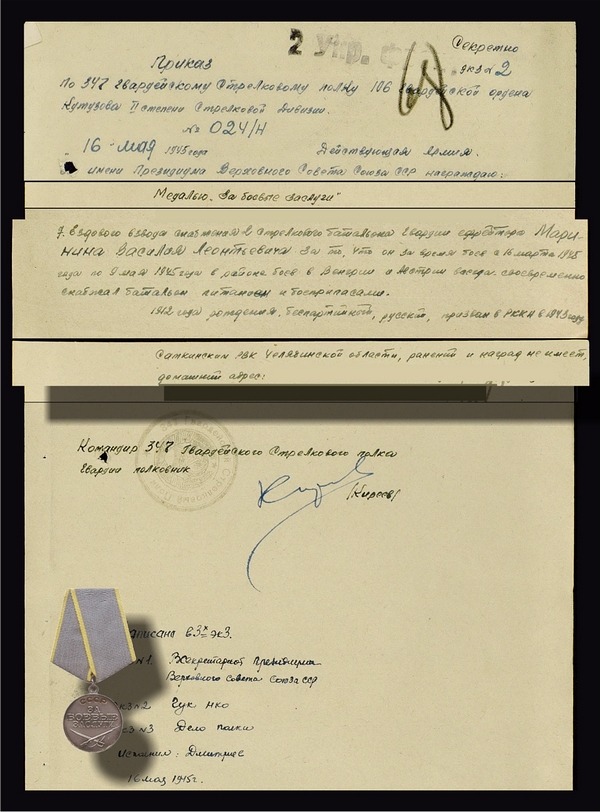 2 Укр. Ф
Секретно
экз № 2
Приказ
По 347 Гвардейскому Стрелковому полку 106 Гвардейской ордена
Кутузова II степени Стрелковой Дивизии.
№ 024/Н
16 мая 1945 года Действующая Армия.
имени Президиума Верховного Совета Союза ССР награждаю:
Медалью "За боевые заслуги"
7. Ездового взвода снабжения Стрелкового батальона Гвардии ефрейтора Мари-
нина Василия Леонтьевича за то, что он за время боев с 16 марта 1945
года по 9 мая 1945 года в районе боев в Венгрии и Австрии всегда своевременно
снабжал батальон питанием и боеприпасами.
1912 года рождения, беспартийного, русский, призван в РККА в 1943 году
Саткинским РВК Челябинской области, ранений и наград не имеет,
домашний адрес:
Командир 347 Гвардейского Стрелкового полка
Гвардии полковник
(Киреев)
писано в 3х экз.
№1. В Секретариат Президиума
Верховного Совета Союза ССР
кз №2 Гук НКО
кз №3 Дело полка
Исполнил: Дмитриев
16 мая 1945 г.
СССР
ЗА
БОЕВЫЕ
ЗАСЛУГИ